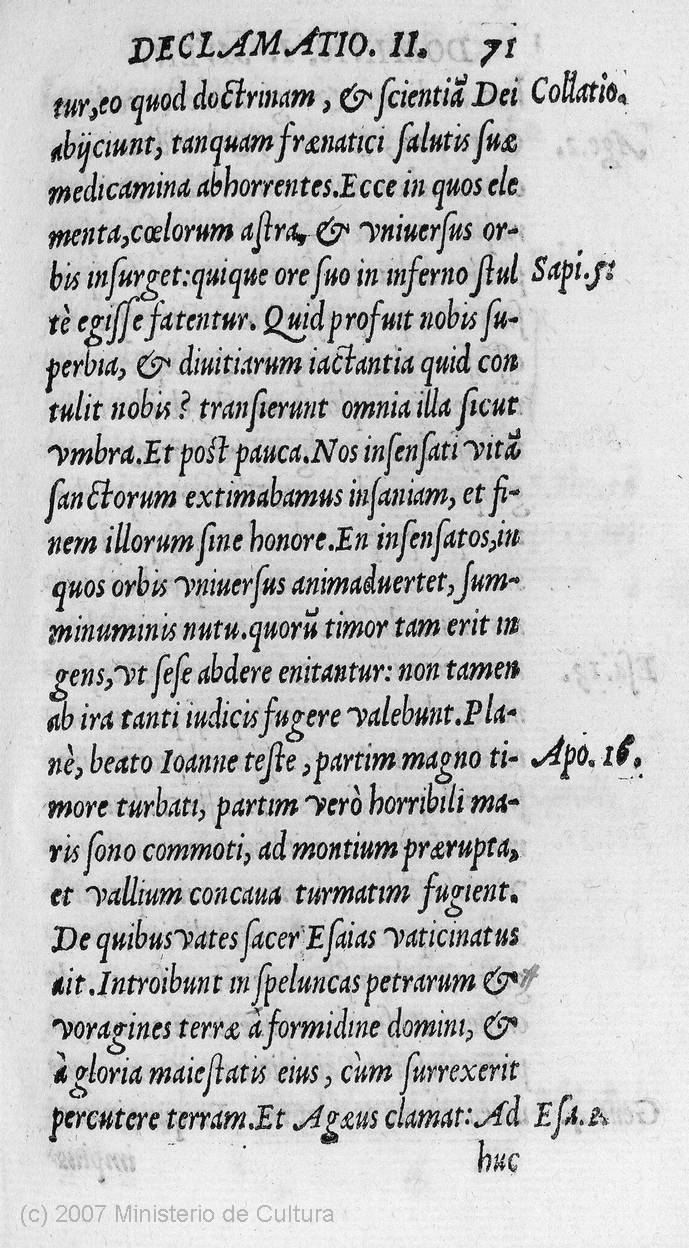 DECLAMATIO. II. 71
tur, eo quod doctrinam, & scientiā Dei Collatio.
abijciunt, tanquam frænatici salutis suæ
medicamina abhorrentes. Ecce in quos ele
menta, cœlorum astra, & vniuersus or-
bis insurget: quique ore suo in inferno stul Sapi. 5.
tè egisse fatentur. Quid profuit nobis su-
perbia, & diuitiarum iactantia quid con
tulit nobis? transierunt omnia illa sicut
vmbra. Et post pauca. Nos insensati vitā
sanctorum extimabamus insaniam, et fi-
nem illorum sine honore. En insensatos, in
quos orbis vniuersus animaduertet, sum-
minuminis nutu. quorū timor tam erit in
gens, vt sese abdere enitantur: non tamen
ab ira tanti iudicis fugere valebunt. Pla-
nè, beato Ioanne teste, partim magno ti- Apo. 16.
more turbati, partim verò horribili ma-
ris sono commoti, ad montium prærupta,
et vallium concaua turmatim fugient.
De quibus vates sacer Esaias vaticinatus
ait. Introibunt in speluncas petrarum &
voragines terræ à formidine domini, &
à gloria maiestatis eius, cùm surrexerit
percutere terram. Et Agæus clamat: Ad Esa. 2.
huc
(c) 2007 Ministerio de Cultura